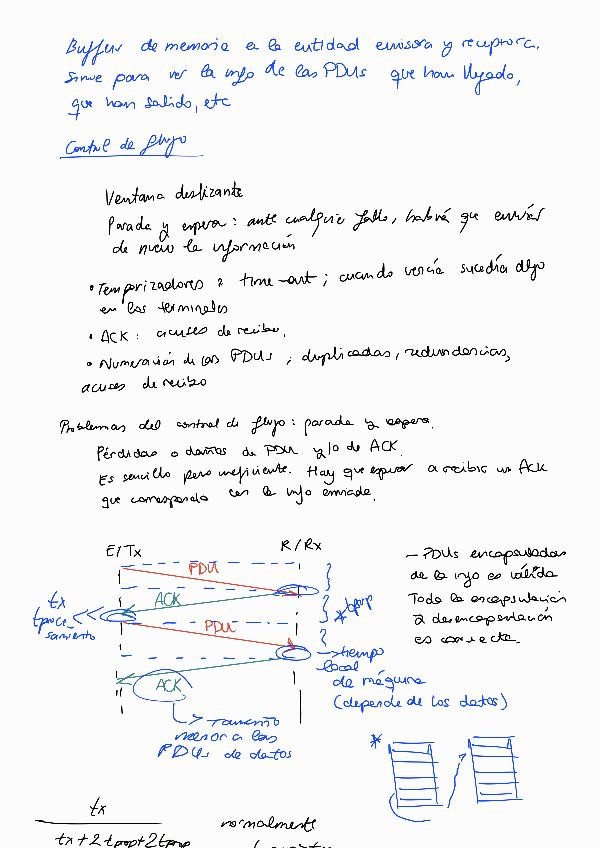 Buffer de memoria e la entidad emisora y receptora.
Sirve para ver la info de las PDUs que han llegado,
que han salido, etc
Control de flujo
Ventana deslizante
Parada y espera: ante cualquier fallo, habrá que enviar
de nuevo la información
• Temporizadores o time-out; cuando vencía sucedía algo
en los terminales
• ACK: acuses de recibo.
• Numeración de las PDUs; duplicadas, redundancias,
acuses de recibo
Problemas del control de flujo: parada y espera.
Pérdidas o daños de PDU y/o de ACK.
Es sencillo pero ineficiente. Hay que esperar a recibir un ACK
que corresponda con la info enviada.
E/Tx
R/Rx
PDU
ACK
PDU
ACK
tx
tproce
samiento
* tprop
→ tiempo
local
de máquina
(depende de los datos)
→ Tamaño
menor a las
PDUs de datos
- PDUs encapsuladas
de la info es válida
Toda la encapsulación
o desencapsulación
es correcta.
*
tx
tx + 2tprop + 2tproc
normalmente